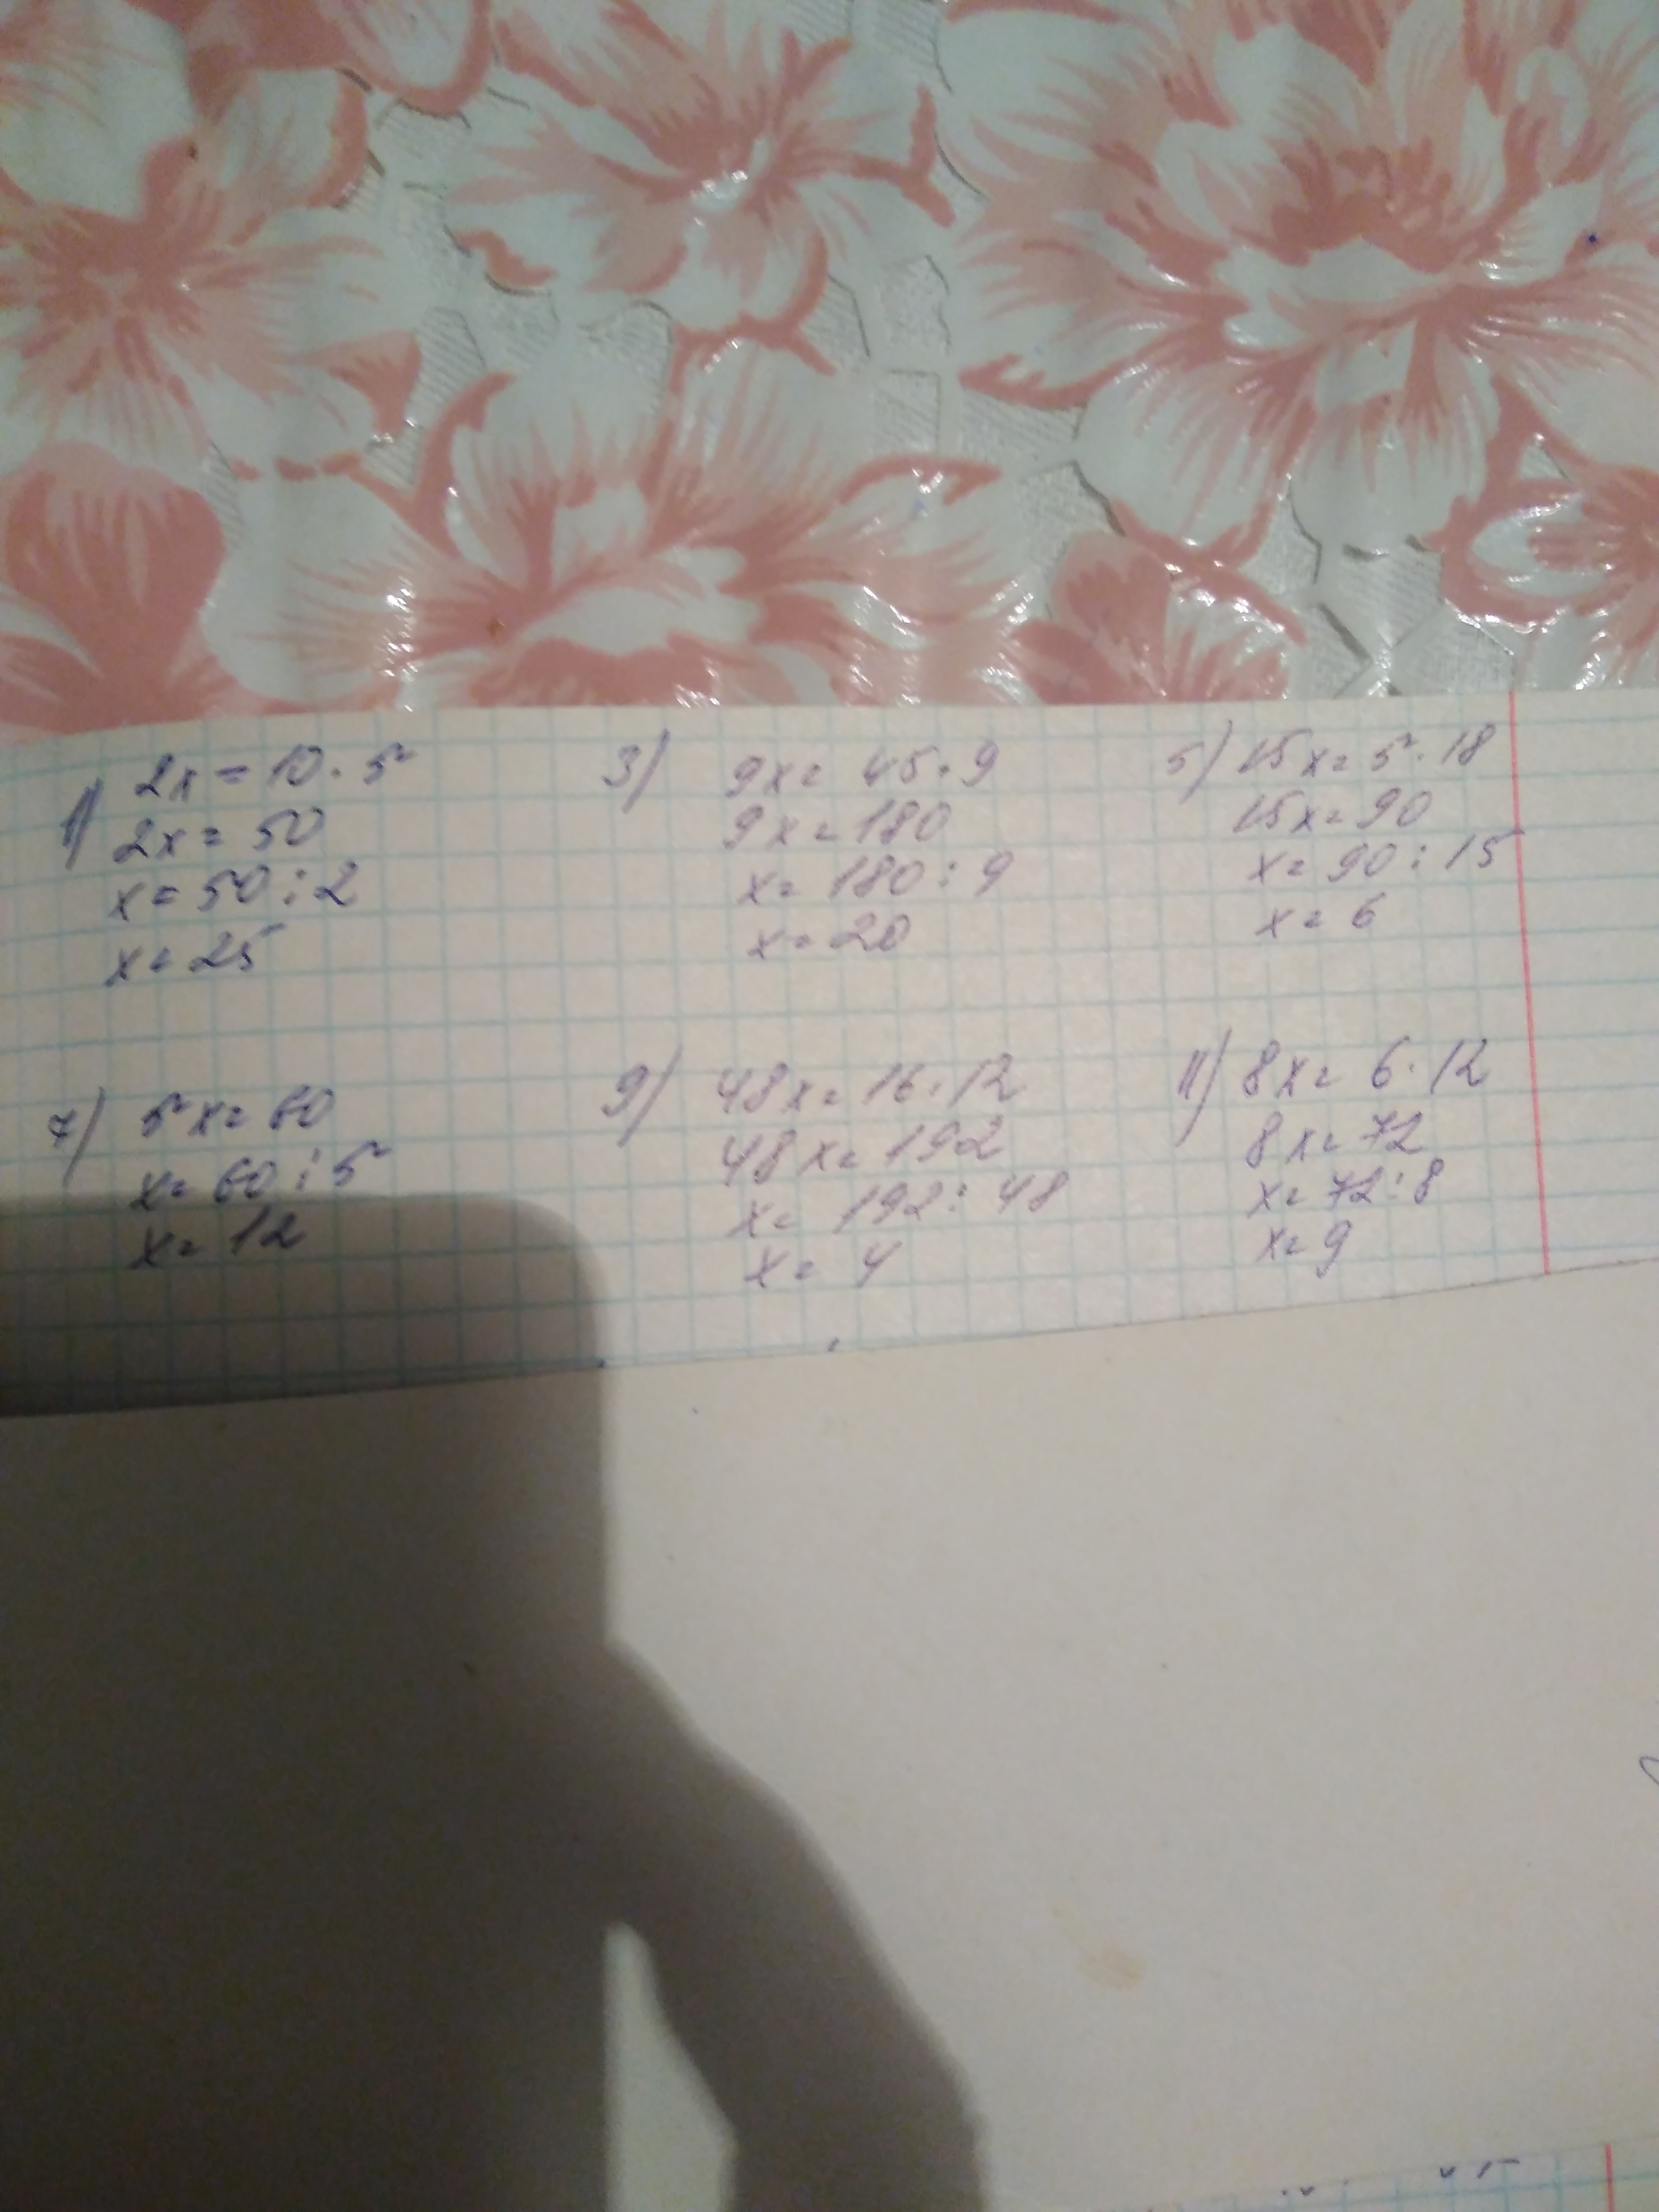 1) 2x = 10 · 5
2x = 50
x = 50 : 2
x = 25
3) 9x = 45 · 9
9x = 180
x = 180 : 9
x = 20
5) 15x = 5 · 18
15x = 90
x = 90 : 15
x = 6
7) 5x = 60
x = 60 : 5
x = 12
9) 48x = 16 · 12
48x = 192
x = 192 : 48
x = 4
11) 8x = 6 · 12
8x = 72
x = 72 : 8
x = 9